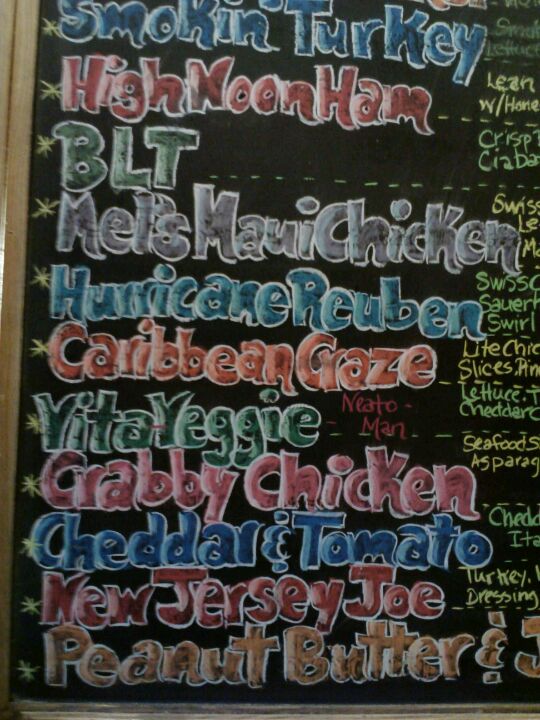 Smokin Turkey
Lettuce
High Noon Ham
Lean
w/Hone
BLT
Crisp
Ciaba
Mel's Maui Chicken
Swiss
Le
Hurricane Reuben
Swiss C
Sauerk
Swirl
Caribbean Craze
Lite Chic
Slices, Pin
Vita-Veggie
Neato-
Man
Lettuce, T
Cheddar c
Crabby Chicken
Seafood S
Asparag
Cheddar & Tomato
Chedd
Ita
New Jersey Joe
Turkey,
Dressing
Peanut Butter & J